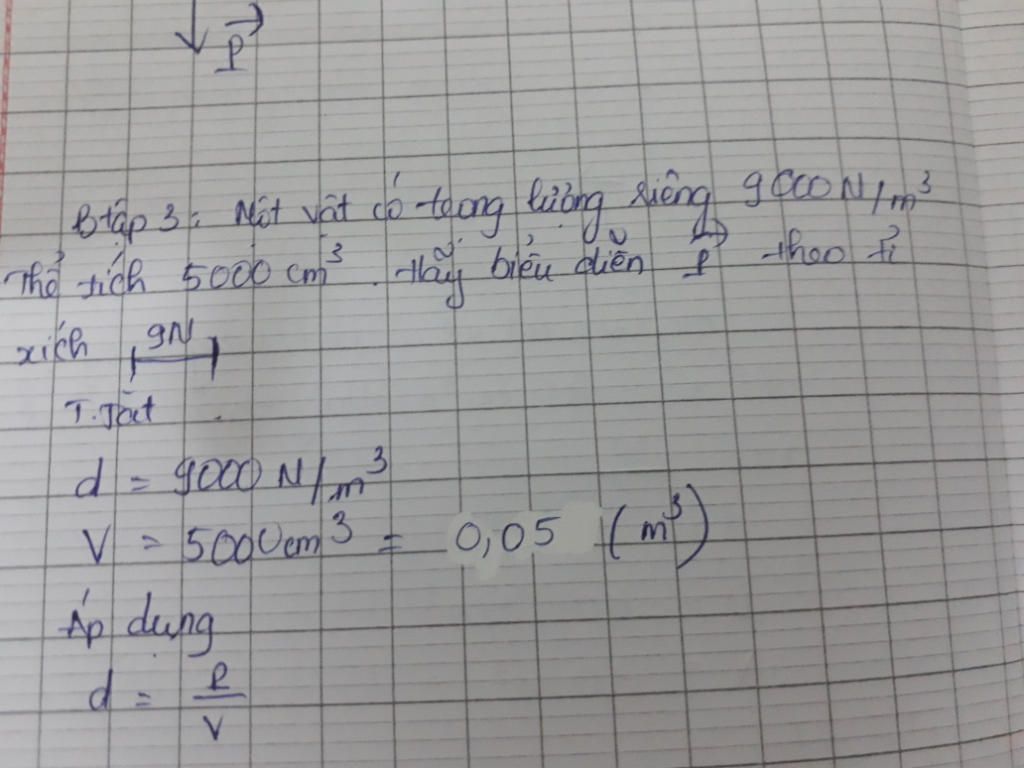 P
Btập 3: Một vật có trọng lượng riêng 9000N/m³
Thể tích 5000cm³. Hãy biểu diễn P theo tỉ
xích 9N
T.Tắt
d = 9000 N/m³
V = 5000cm³ = 0,05 (m³)
Áp dụng
d = P
V